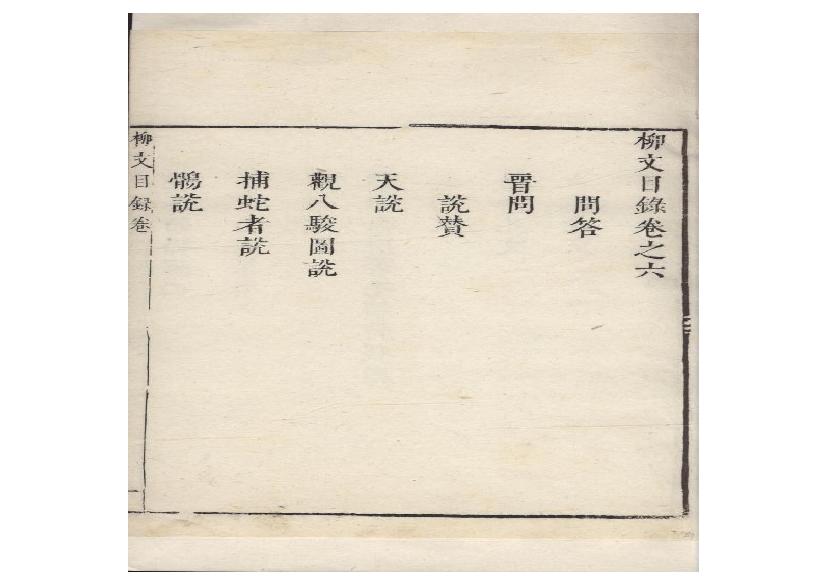 柳文目錄卷之六
問答
晉問
說贊
天說
觀八駿圖說
捕蛇者說
鶻說
柳文目錄卷